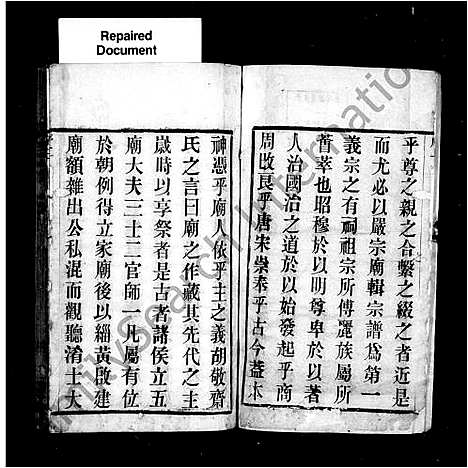 Repaired
Document
乎尊之親之合繫之綴之者近是
而尤必以嚴宗廟輯宗譜為第一
義宗之有祠祖宗所俜麗族屬所
薈萃也昭穆於以明尊卑於以著
人治國治之道於以始發起乎商
周改良乎唐宋崇奉乎古今蓋本
神憑乎廟人依乎主之義胡敬齋
氏之言曰廟之作藏其先代之主
歲時以享祭者是古者諸侯立五
廟大夫三士二官師一凡屬有位
於朝例得立家廟後以緇黃啟建
廟額雜出公私混而觀聽淆士大
FamilySearch International